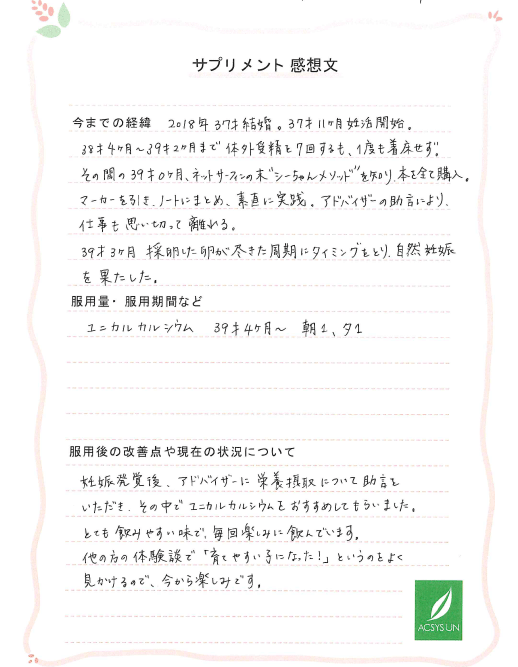 サプリメント 感想文
今までの経緯 2018年 37才 結婚。37才11ヶ月 妊活開始。
38才4ヶ月〜39才2ヶ月まで 体外受精を7回するも、1度も着床せず。
その間の39才0ヶ月、ネットサーフィンの末"シーちゃんメソッド"を知り、本を全て購入。
マーカーを引き、ノートにまとめ、素直に実践。アドバイザーの助言により、
仕事も思い切って離れる。
39才3ヶ月 採卵した卵が尽きた周期にタイミングをとり、自然妊娠
を果たした。
服用量・服用期間など
ユニカルカルシウム 39才4ヶ月〜 朝1、夕1
服用後の改善点や現在の状況について
妊娠発覚後、アドバイザーに栄養摂取について助言を
いただき、その中でユニカルカルシウムをおすすめしてもらいました。
とても飲みやすい味で、毎回楽しみに飲んでいます。
他の方の体験談で「育てやすい子になった!」というのをよく
見かけるので、今から楽しみです。
ACSYSUN